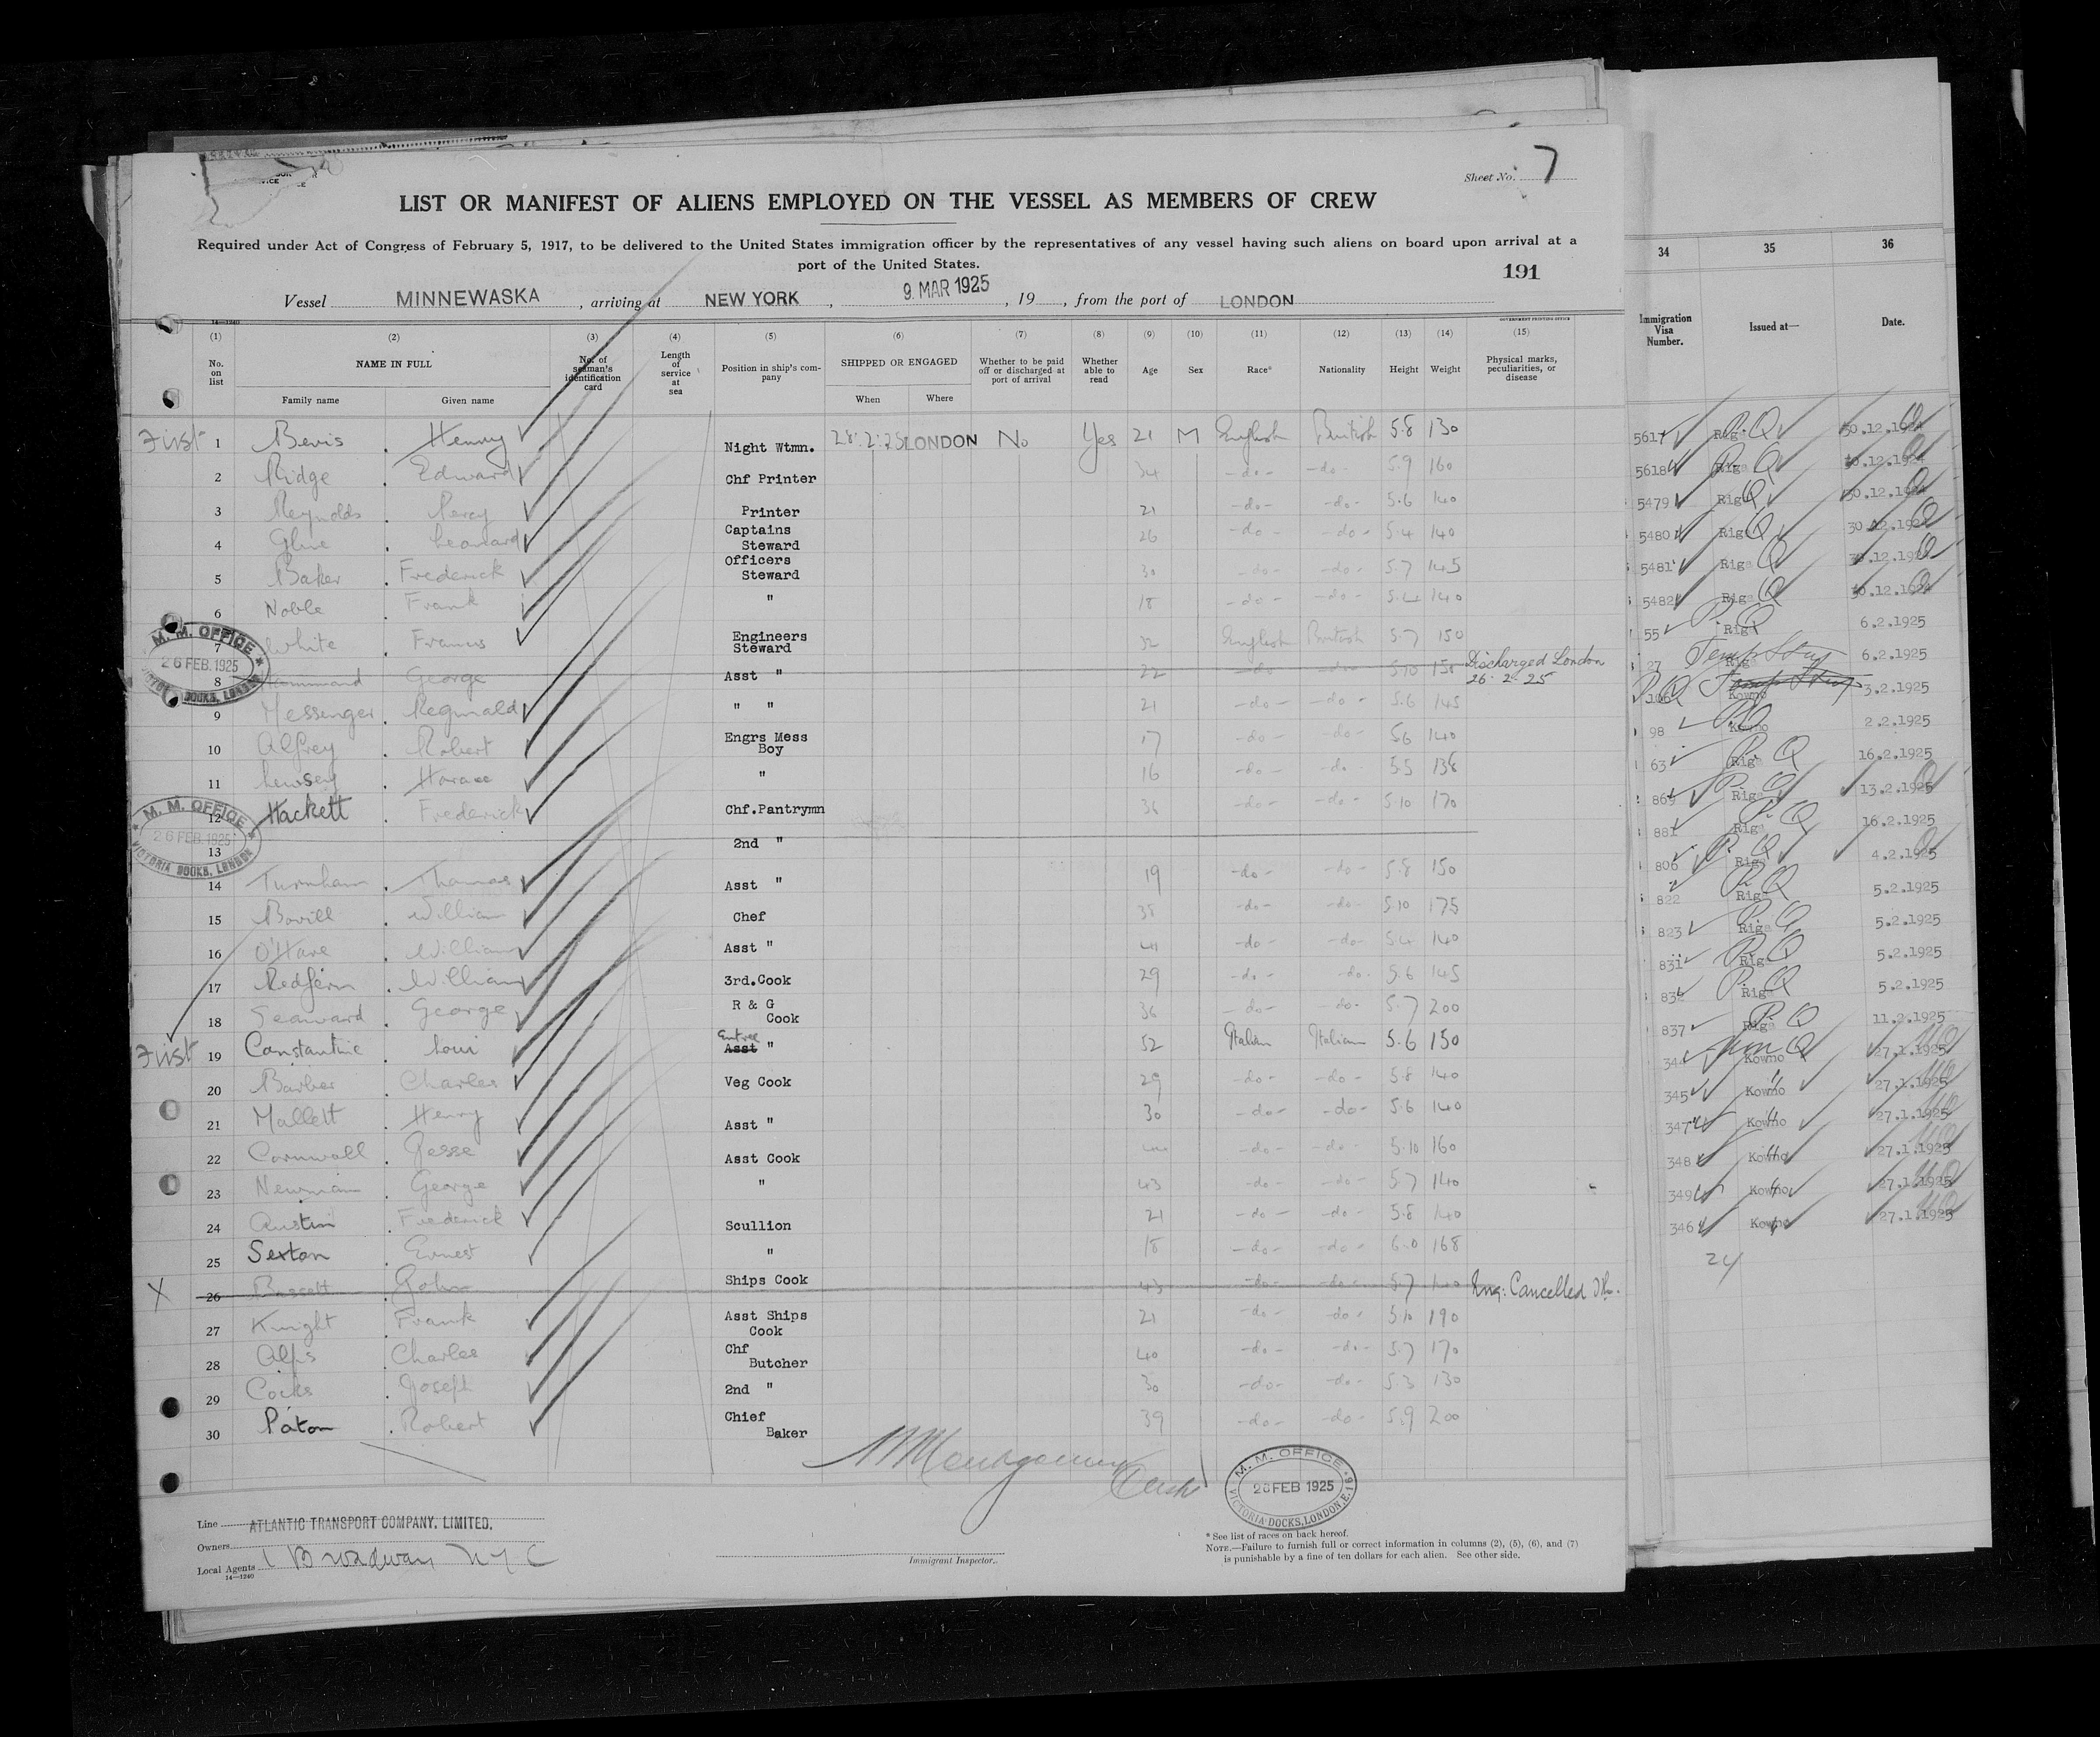 Sheet No. 7
LIST OR MANIFEST OF ALIENS EMPLOYED ON THE VESSEL AS MEMBERS OF CREW
Required under Act of Congress of February 5, 1917, to be delivered to the United States immigration officer by the representatives of any vessel having such aliens on board upon arrival at a
port of the United States.
191
Vessel MINNEWASKA, arriving at NEW YORK, 9 MAR 1925, 19, from the port of LONDON
14—1240 GOVERNMENT PRINTING OFFICE
(1) (2) (3) (4) (5) (6) (7) (8) (9) (10) (11) (12) (13) (14) (15)
No. on list NAME IN FULL Family name Given name No. of seaman's identification card Length of service at sea Position in ship's company SHIPPED OR ENGAGED When Where Whether to be paid off or discharged at port of arrival Whether able to read Age Sex Race* Nationality Height Weight Physical marks, peculiarities, or disease
First 1 Bevis Henry Night Wtmn. 28.2.25 LONDON No Yes 21 M English British 5.8 130
2 Ridge Edward Chf Printer 34 -do- -do- 5.9 160
3 Reynolds Percy Printer 21 -do- -do- 5.6 140
4 Glue Leonard Captains Steward 26 -do- -do- 5.4 140
5 Baker Frederick Officers Steward 30 -do- -do- 5.7 145
6 Noble Frank " 18 -do- -do- 5.4 140
7 White Francis Engineers Steward 32 English British 5.7 150
8 George Asst " 22 -do- -do- 5.10 158 Discharged London 26.2.25
9 Messenger Reginald " " 21 -do- -do- 5.6 145
10 Alfrey Robert Engrs Mess Boy 17 -do- -do- 5.6 140
11 Horace " 16 -do- -do- 5.5 136
12 Hackett Frederick Chf.Pantrymn 36 -do- -do- 5.10 170
13 2nd "
14 Turnham Thomas Asst " 19 -do- -do- 5.8 150
15 Bovill William Chef 38 -do- -do- 5.10 175
16 O'Hare William Asst " 41 -do- -do- 5.4 140
17 Redfern William 3rd.Cook 29 -do- -do- 5.6 145
18 Seaward George R & G Cook 36 -do- -do- 5.7 200
First 19 Constantine Loui Entree Asst " 52 Italian Italian 5.6 150
20 Barber Charles Veg Cook 29 -do- -do- 5.8 140
21 Mallett Henry Asst " 30 -do- -do- 5.6 140
22 Cornwall Jesse Asst Cook -do- -do- 5.10 160
23 Newman George " 43 -do- -do- 5.7 140
24 Austin Frederick Scullion 21 -do- -do- 5.8 140
25 Sexton Ernest " 18 -do- -do- 6.0 168
X 26 John Ships Cook 43 -do- -do- 5.7 Eng: Cancelled
27 Knight Frank Asst Ships Cook 21 -do- -do- 5.10 190
28 Alps Charles Chf Butcher 40 -do- -do- 5.7 170
29 Cocks Joseph 2nd " 30 -do- -do- 5.3 130
30 Paton Robert Chief Baker 39 -do- -do- 5.9 200
M. M. OFFICE 26 FEB. 1925 VICTORIA DOCKS, LONDON
M. M. OFFICE 26 FEB. 1925 VICTORIA DOCKS, LONDON
M. M. OFFICE 26 FEB 1925 VICTORIA DOCKS, LONDON, E.16
Line ATLANTIC TRANSPORT COMPANY, LIMITED.
Owners
Local Agents 1 Broadway NYC
14—1240
Immigrant Inspector.
* See list of races on back hereof.
NOTE.—Failure to furnish full or correct information in columns (2), (5), (6), and (7)
is punishable by a fine of ten dollars for each alien. See other side.
34 35 36
Immigration Visa Number. Issued at— Date.
5617 Riga 30.12.1924
5618 Riga 30.12.1924
5479 Riga 30.12.1924
5480 Riga 30.12.1924
5481 Riga 30.12.1924
5482 Riga 30.12.1924
55 Riga 6.2.1925
27 Riga 6.2.1925
Kowno 3.2.1925
98 Kowno 2.2.1925
63 Riga 16.2.1925
869 Riga 13.2.1925
881 Riga 16.2.1925
806 Riga 4.2.1925
822 Riga 5.2.1925
823 Riga 5.2.1925
831 Riga 5.2.1925
Riga 5.2.1925
837 Riga 11.2.1925
344 Kowno 27.1.1925
345 Kowno 27.1.1925
347 Kowno 27.1.1925
348 Kowno 27.1.1925
349 Kowno 27.1.1925
346 Kowno 27.1.1925
24